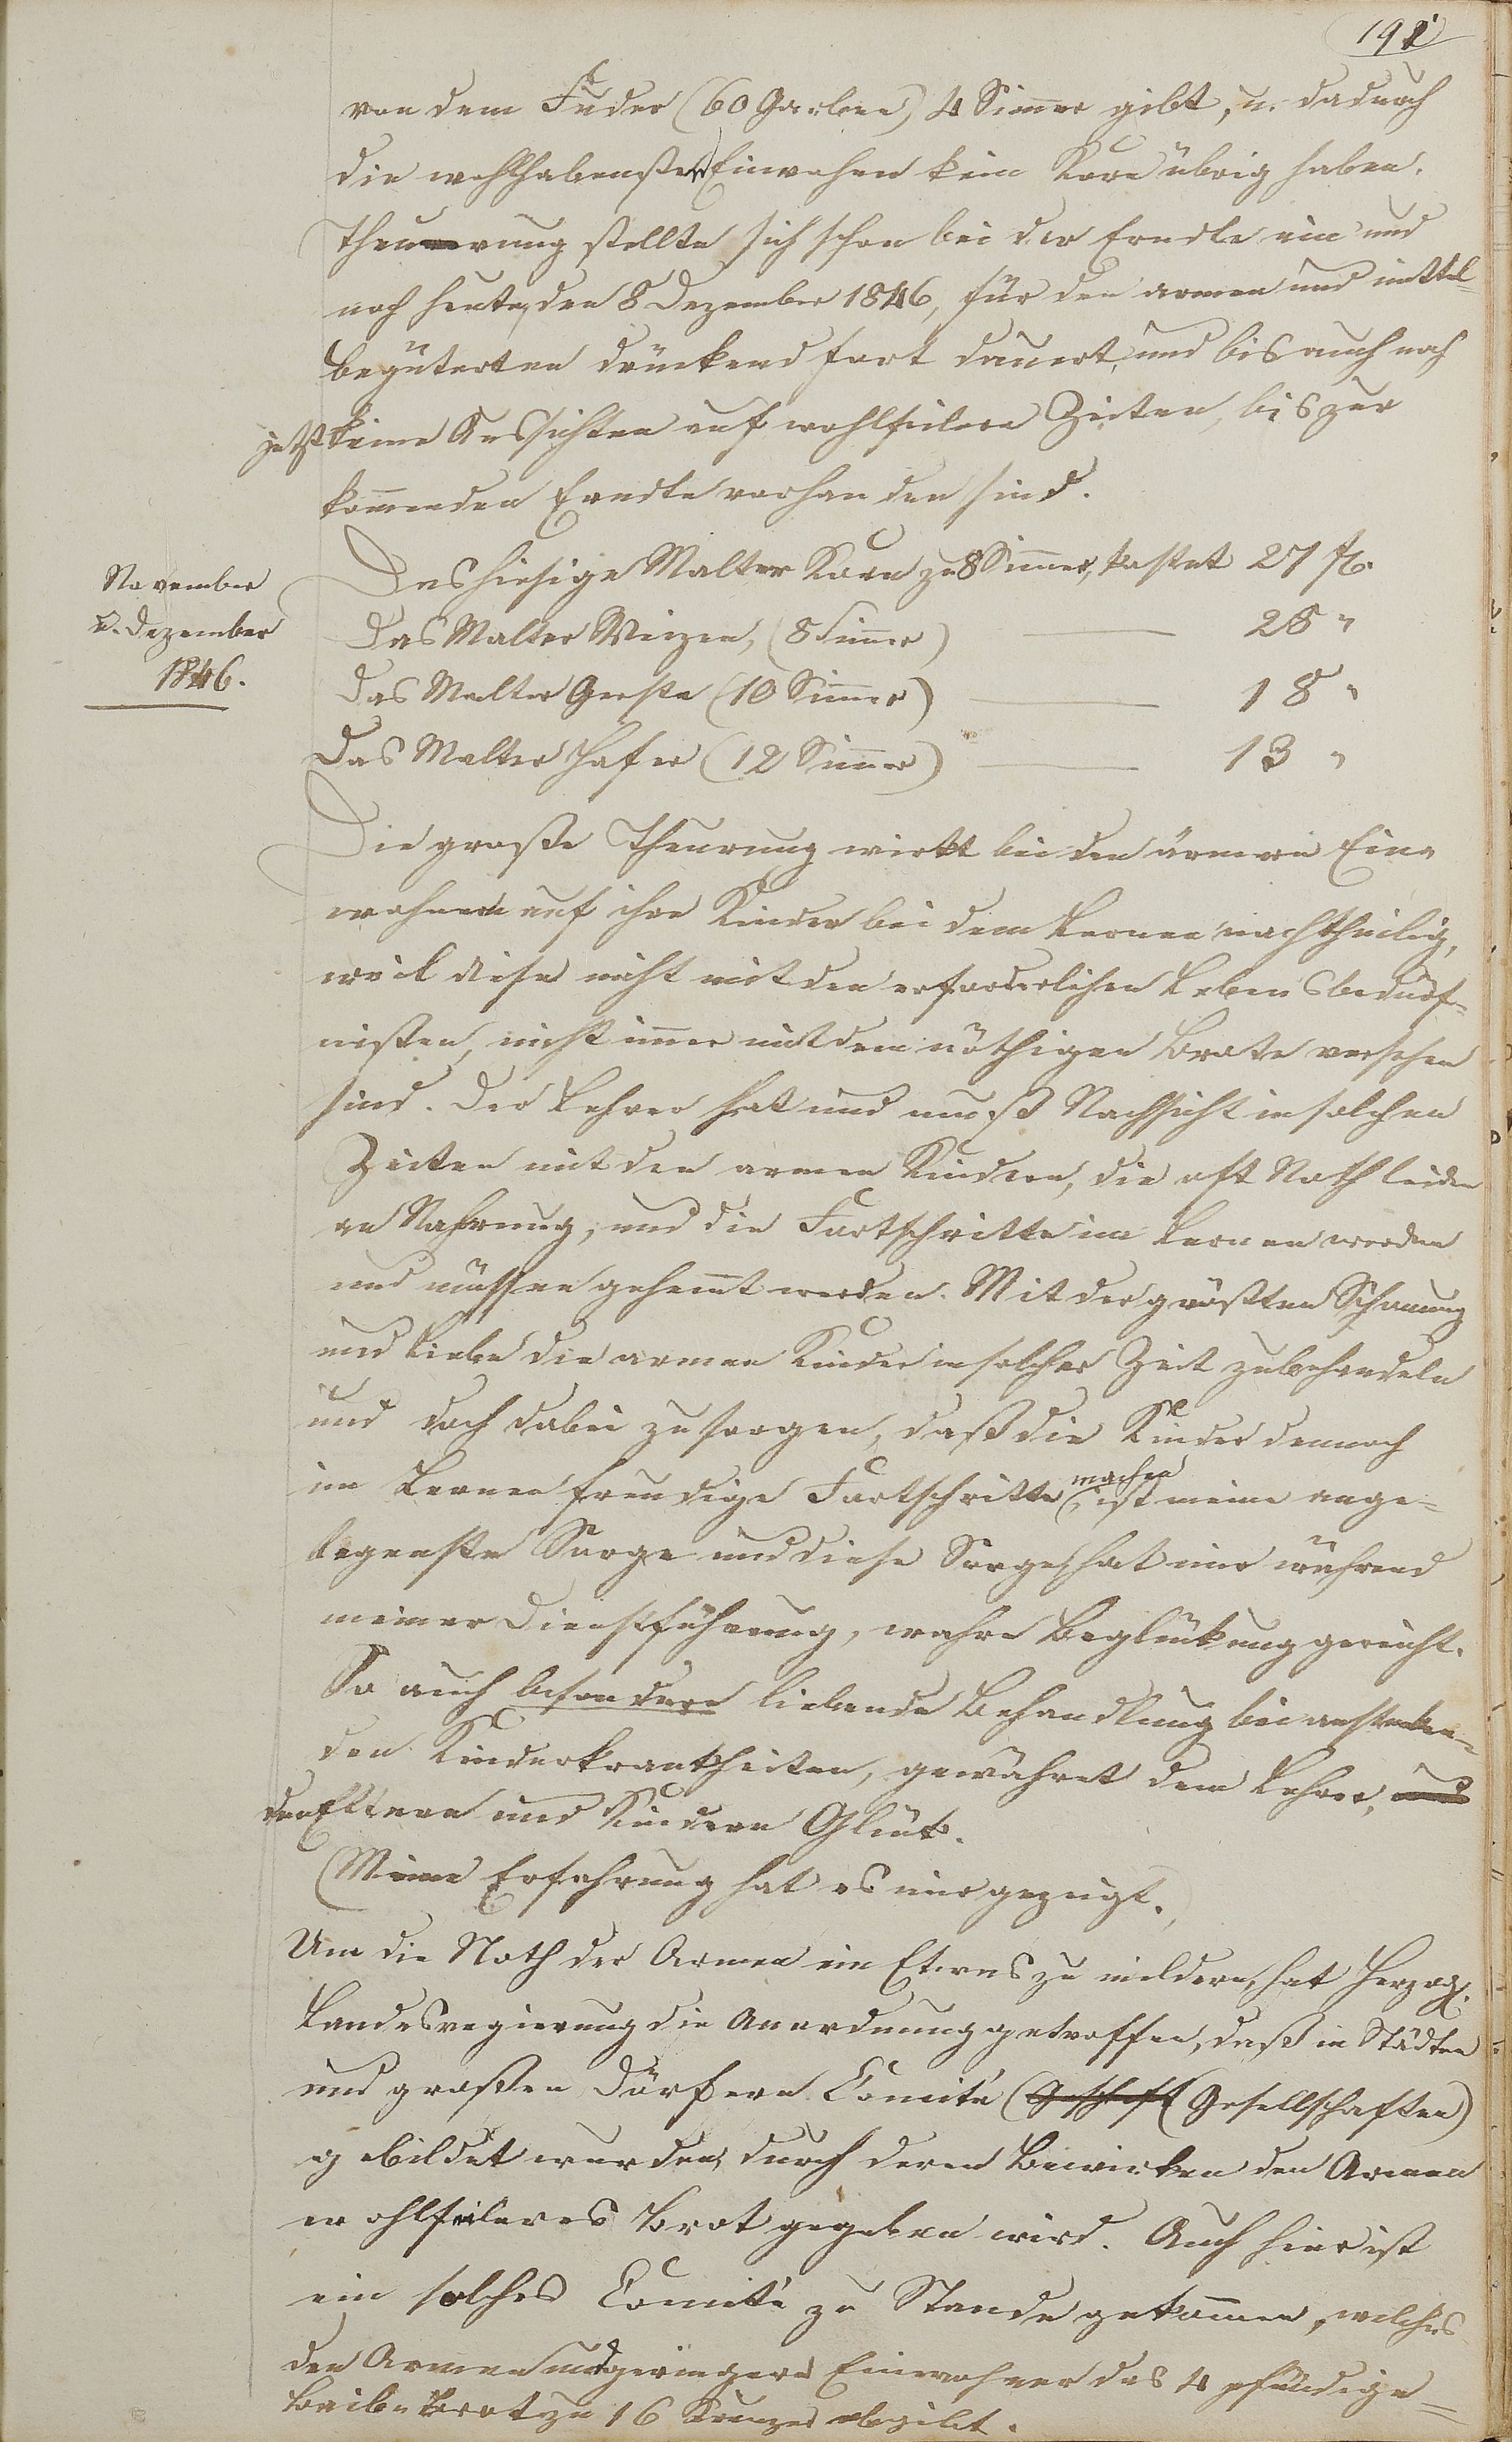 191
von dem Fuder (60 Garben) 4 Simmer gibt, u. dadurch
die wohlhabensten Einwohner kein Korn übrig haben.
Theuerung stellte sich schon bei der Erndte ein und
noch heute, den 8 Dezember 1846, für den armen und mittel-
begüterten drückend fort dauert, und bis auch noch
jetzt keine Aussichten auf wohlfeilere Zeiten, bis zur
kom̄enden Erndte vorhanden sind.
November
u. Dezember
1846.
Das hiesige Malter Korn zu 8 Sim̄er, kostet 27 fl.
Das Malter Weizen, (8 Sim̄er) — 28 "
Das Malter Gerste (10 Sim̄er) — 18 "
Das Malter Hafer (12 Sim̄er) — 13 "
Die große Theurung wirkt bei den ärmern Ein-
wohnern auf ihre Kinder bei dem Lernen nachtheilig,
weil diese nicht mit den erforderlichen Lebensbedürf-
nißen, nicht im̄er mit dem nöthigen Brote versehen
sind. Der Lehrer hat und muß Nachsicht in solchen
Zeiten mit den armen Kindern, die oft Noth leiden
an Nahrung, und die Fortschritte im Lernen werden
und müssen gehem̄t werden. Mit der größten Schonung
und Liebe die armen Kinder in solcher Zeit zubehandeln
und doch dabei zu sorgen, daß die Kinder dennoch
im Lernen freudige Fortschritte machen, ist meine ange-
legenste Sorge und diese Sorge hat mir während
meiner Dienstführung, wahre Beglückung gereicht.
So auch besondere liebende Behandlung bei anstecken-
den Kinderkrankheiten, gewähret dem Lehrer, und
den Eltern und Kindern Glück.
(Meine Erfahrung hat es mir gezeigt.
Um die Noth der Armen ein Etwas zu mildern, hat Herzogl.
Landesregierung die Anordnung getroffen, daß in Städten
und großen Dörfern Comité (Geschaft (Gesellschaften)
gebildet wurden, durch deren Bewirken den Armen
wohlfeileres Brot gegeben wird. Auch hier ist
ein solches Comité zu Stande gekom̄en, welches
den Armen und geringern Einwohner das 4 pfündige-
Laib-Brot zu 16 Kreuzer abgibt.